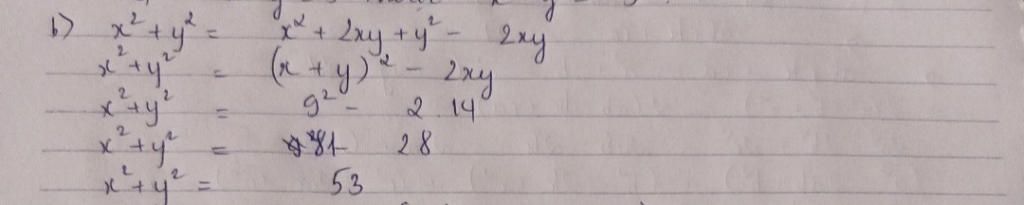 b) x² + y² = x² + 2xy + y² - 2xy
x² + y² = (x + y)² - 2xy
x² + y² = 9² - 2.14
x² + y² = 81 - 28
x² + y² = 53